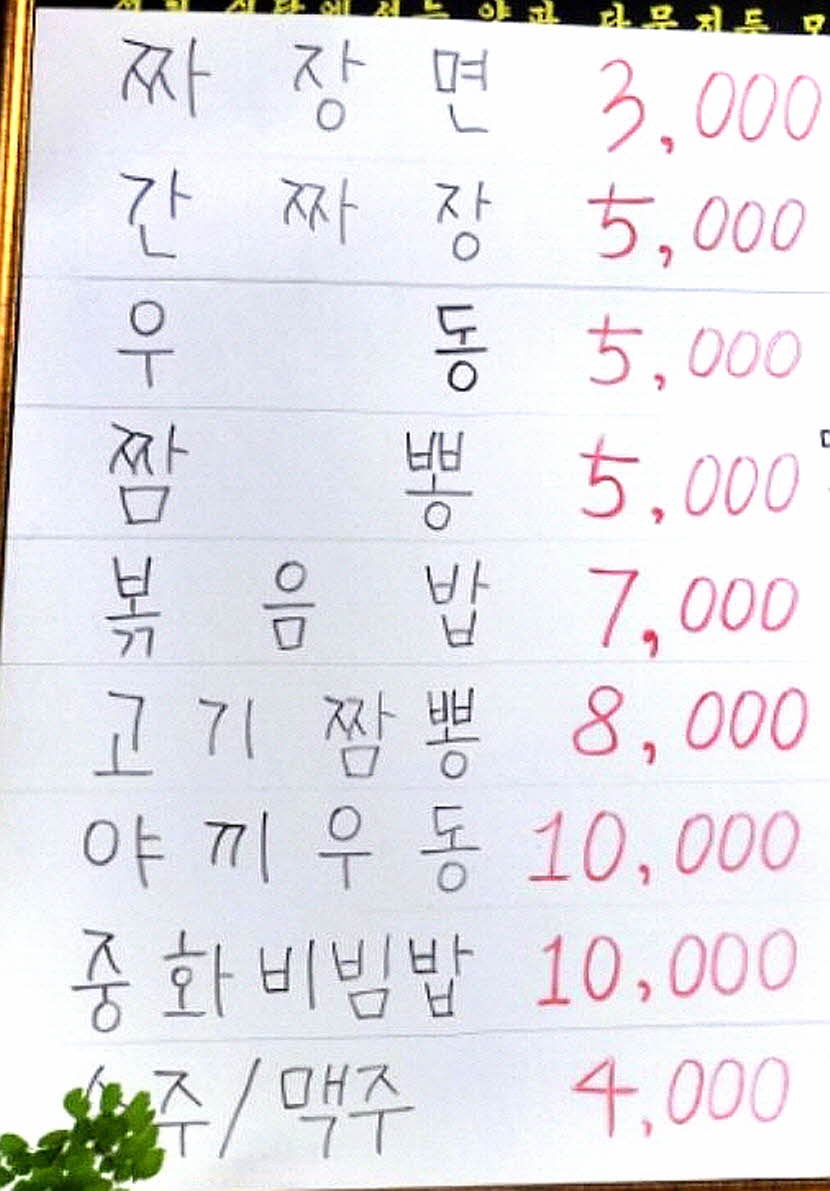 짜장면 3,000
간짜장 5,000
우동 5,000
짬뽕 5,000
볶음밥 7,000
고기짬뽕 8,000
야끼우동 10,000
중화비빔밥 10,000
주/맥주 4,000